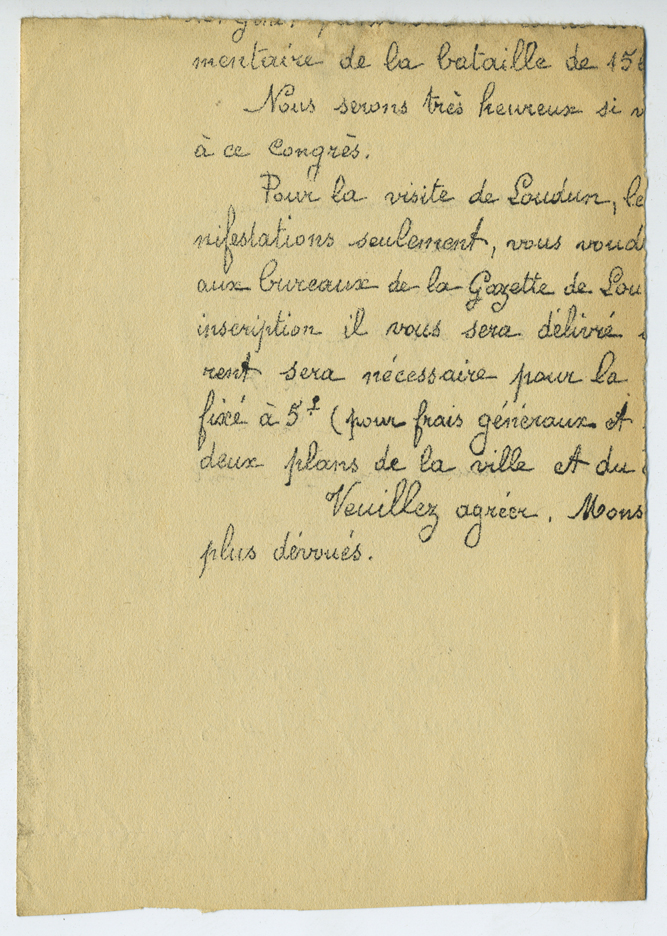 mentaire de la bataille de 15
Nous serons très heureux si v
à ce Congrès.
Pour la visite de Loudun, le
nifestations seulement, vous voud
aux bureaux de la Gazette de Lou
inscription il vous sera délivré
rent sera nécessaire pour la
fixé à 5f (pour frais généraux et
deux plans de la ville et du
Veuillez agréer, Mons
plus dévoués.